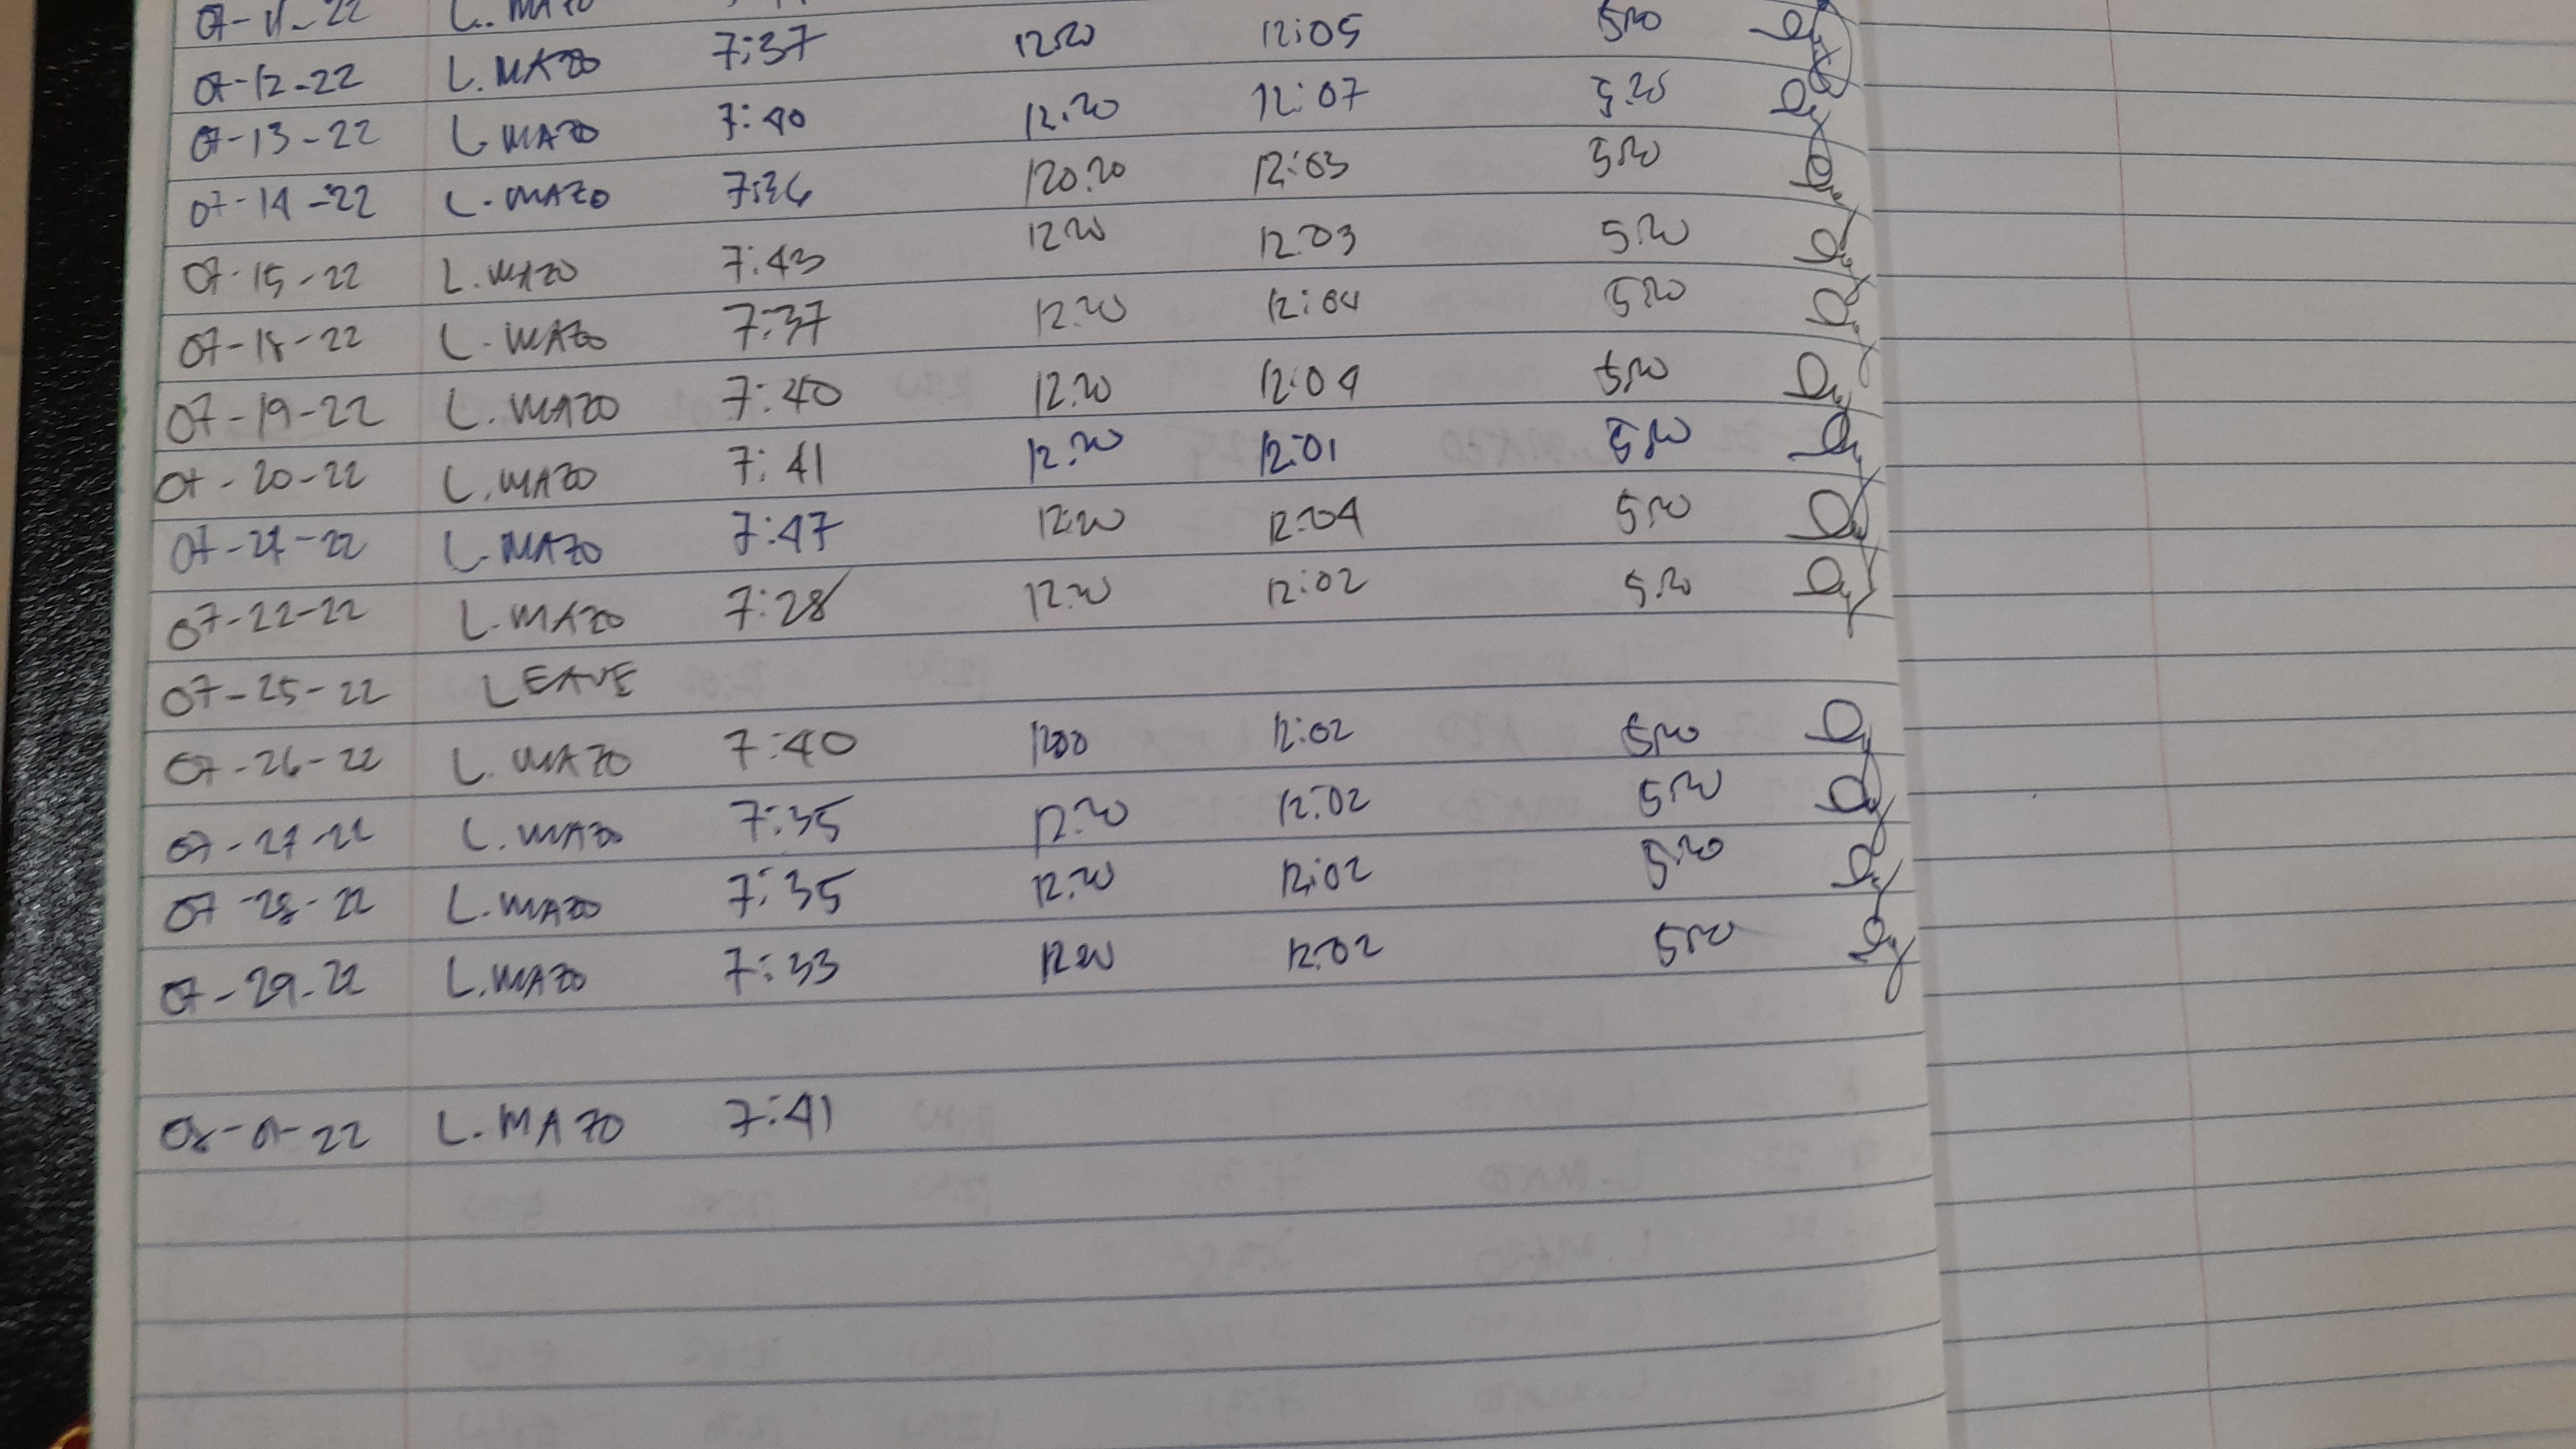 07-11-22 L. MAZO
07-12-22 L. MAZO 7:37 12:20 12:05 5:20
07-13-22 L. MAZO 7:40 12:20 12:07 5:25
07-14-22 L. MAZO 7:36 120:20 12:03 5:20
07-15-22 L. MAZO 7:43 12:20 12:03 5:20
07-18-22 L. MAZO 7:37 12:20 12:04 5:20
07-19-22 L. MAZO 7:40 12:20 12:04 5:20
07-20-22 L. MAZO 7:41 12:20 12:01 5:20
07-21-22 L. MAZO 7:47 12:20 12:04 5:20
07-22-22 L. MAZO 7:28 12:20 12:02 5:20
07-25-22 LEAVE
07-26-22 L. MAZO 7:40 1200 12:02 5:20
07-27-22 L. MAZO 7:35 12:20 12:02 5:20
07-28-22 L. MAZO 7:35 12:20 12:02 5:20
07-29-22 L. MAZO 7:33 12:20 12:02 5:20
08-01-22 L. MAZO 7:41